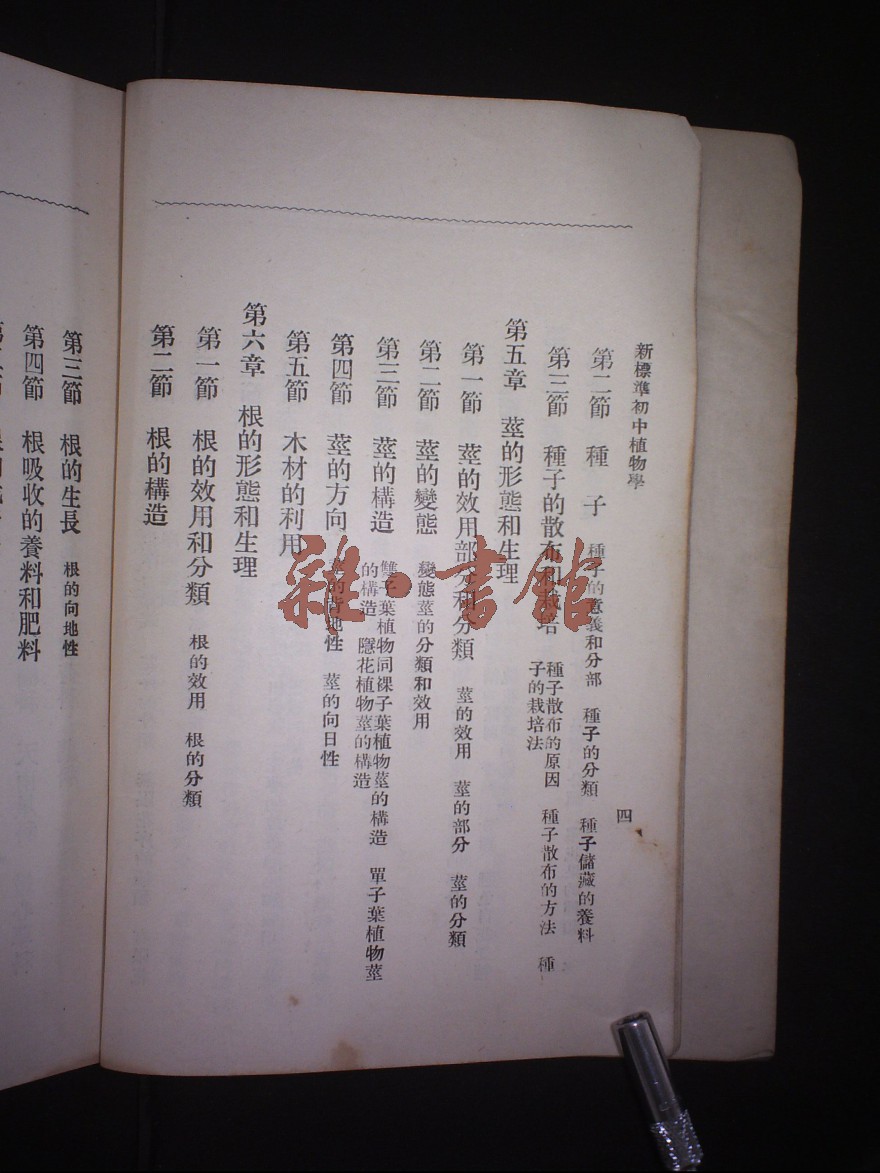 新標準初中植物學
四
第二節 種 子 種子的意義和分部 種子的分類 種子儲藏的養料
第三節 種子的散布和栽培 種子散布的原因 種子散布的方法 種
子的栽培法
第五章 莖的形態和生理
第一節 莖的效用部分和分類 莖的效用 莖的部分 莖的分類
第二節 莖的變態 變態莖的分類和效用
第三節 莖的構造 雙子葉植物同裸子葉植物莖的構造 單子葉植物莖
的構造 隱花植物莖的構造
第四節 莖的方向 莖的背地性 莖的向日性
第五節 木材的利用
第六章 根的形態和生理
第一節 根的效用和分類 根的效用 根的分類
第二節 根的構造
第三節 根的生長 根的向地性
第四節 根吸收的養料和肥料
雜·書館